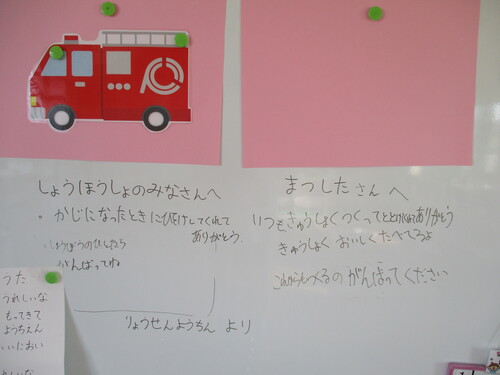 しょうほうしょのみなさんへ
・かじになったときにひけしてくれて
ありがとう
しょうぼうのひとたち
がんばってね
りょうせんようちえん より
まつしたさんへ
いつもきゅうしょくつくってとどけてくれてありがとう
きゅうしょくおいしくたべてるよ
これからもつくるのがんばってください
うた
うれしいな
もってきて
ようちえん
いいにおい